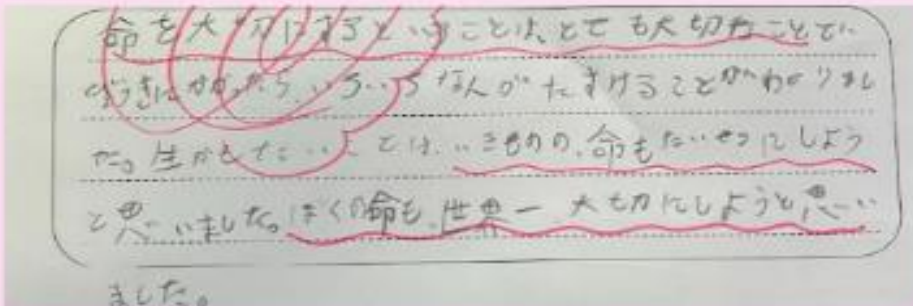 命を大切にするということは、とても大切なことで
びょうきにかかったら、いろいろなんがたすけることがわかりまし
た。生かしたいことは、いきものの、命もたいせつにしよう
と思いました。ぼくの命も、世界一、大切にしようと思い
ました。